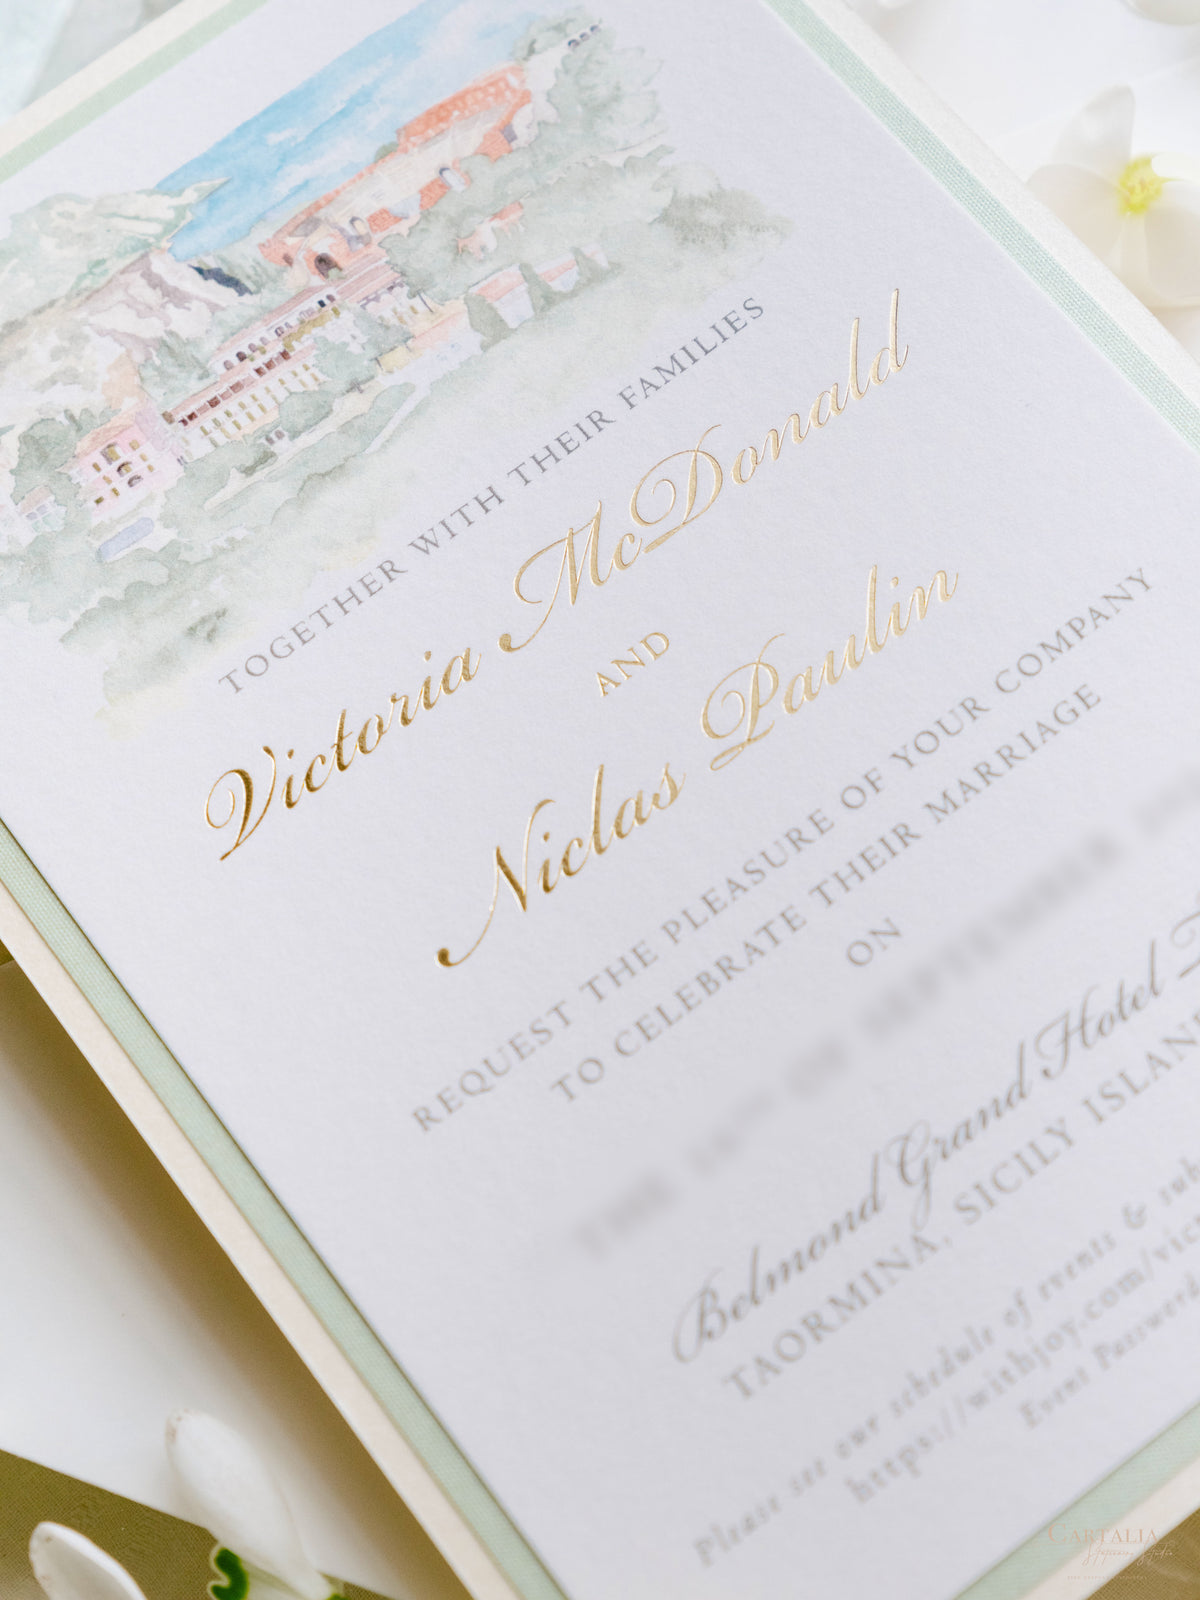 TOGETHER WITH THEIR FAMILIES
Victoria McDonald
AND
Niclas Paulin
REQUEST THE PLEASURE OF YOUR COMPANY
TO CELEBRATE THEIR MARRIAGE
ON
Belmond Grand Hotel
TAORMINA, SICILY ISLAND
Please see our schedule of events &
https://withjoy.com/vic
Event Password
CARTALIA